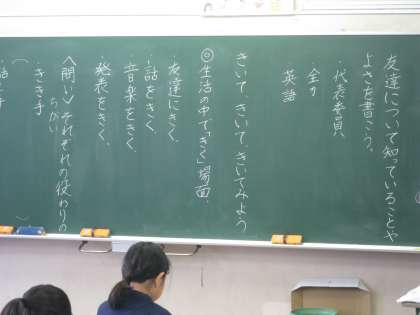 友達について知っていることや
よさを書こう。
・代表委員
・全り
英語
きいて、きいて、きいてみよう
◎生活の中で「きく」場面。
・友達にきく。
・話をきく。
・音楽をきく。
・発表をきく。
〈問い〉それぞれの役わりの
ちがい
・きき手
・話し手